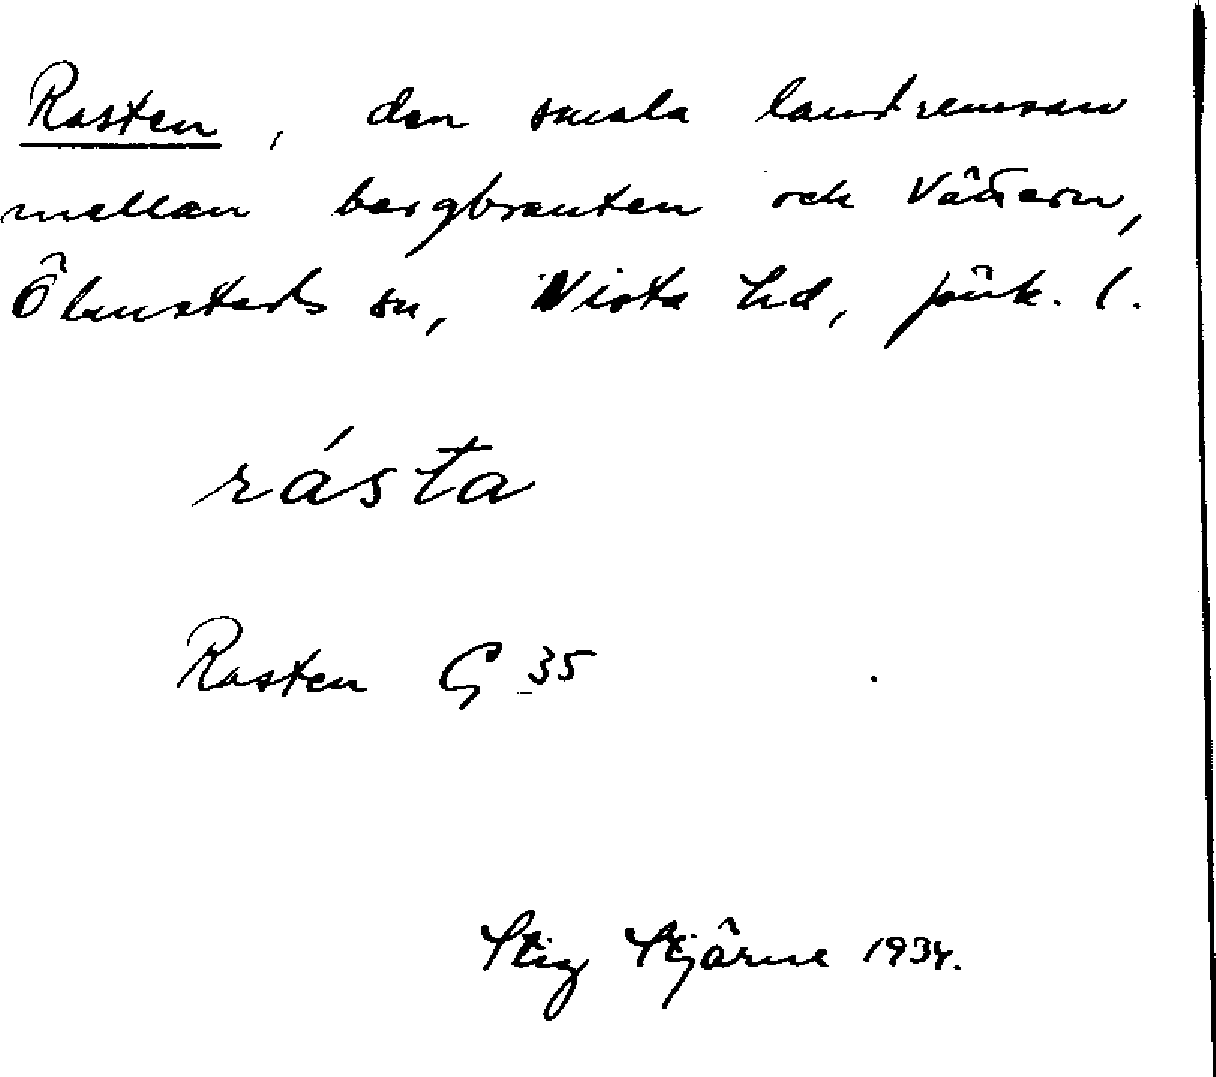 Rasten, den smala landremsan
mellan bergbranten och Vättern,
Ölmstads sn, Vista hd, Jönk. l.
rásta
Rasten G 35
Stig Stjärne 1934.